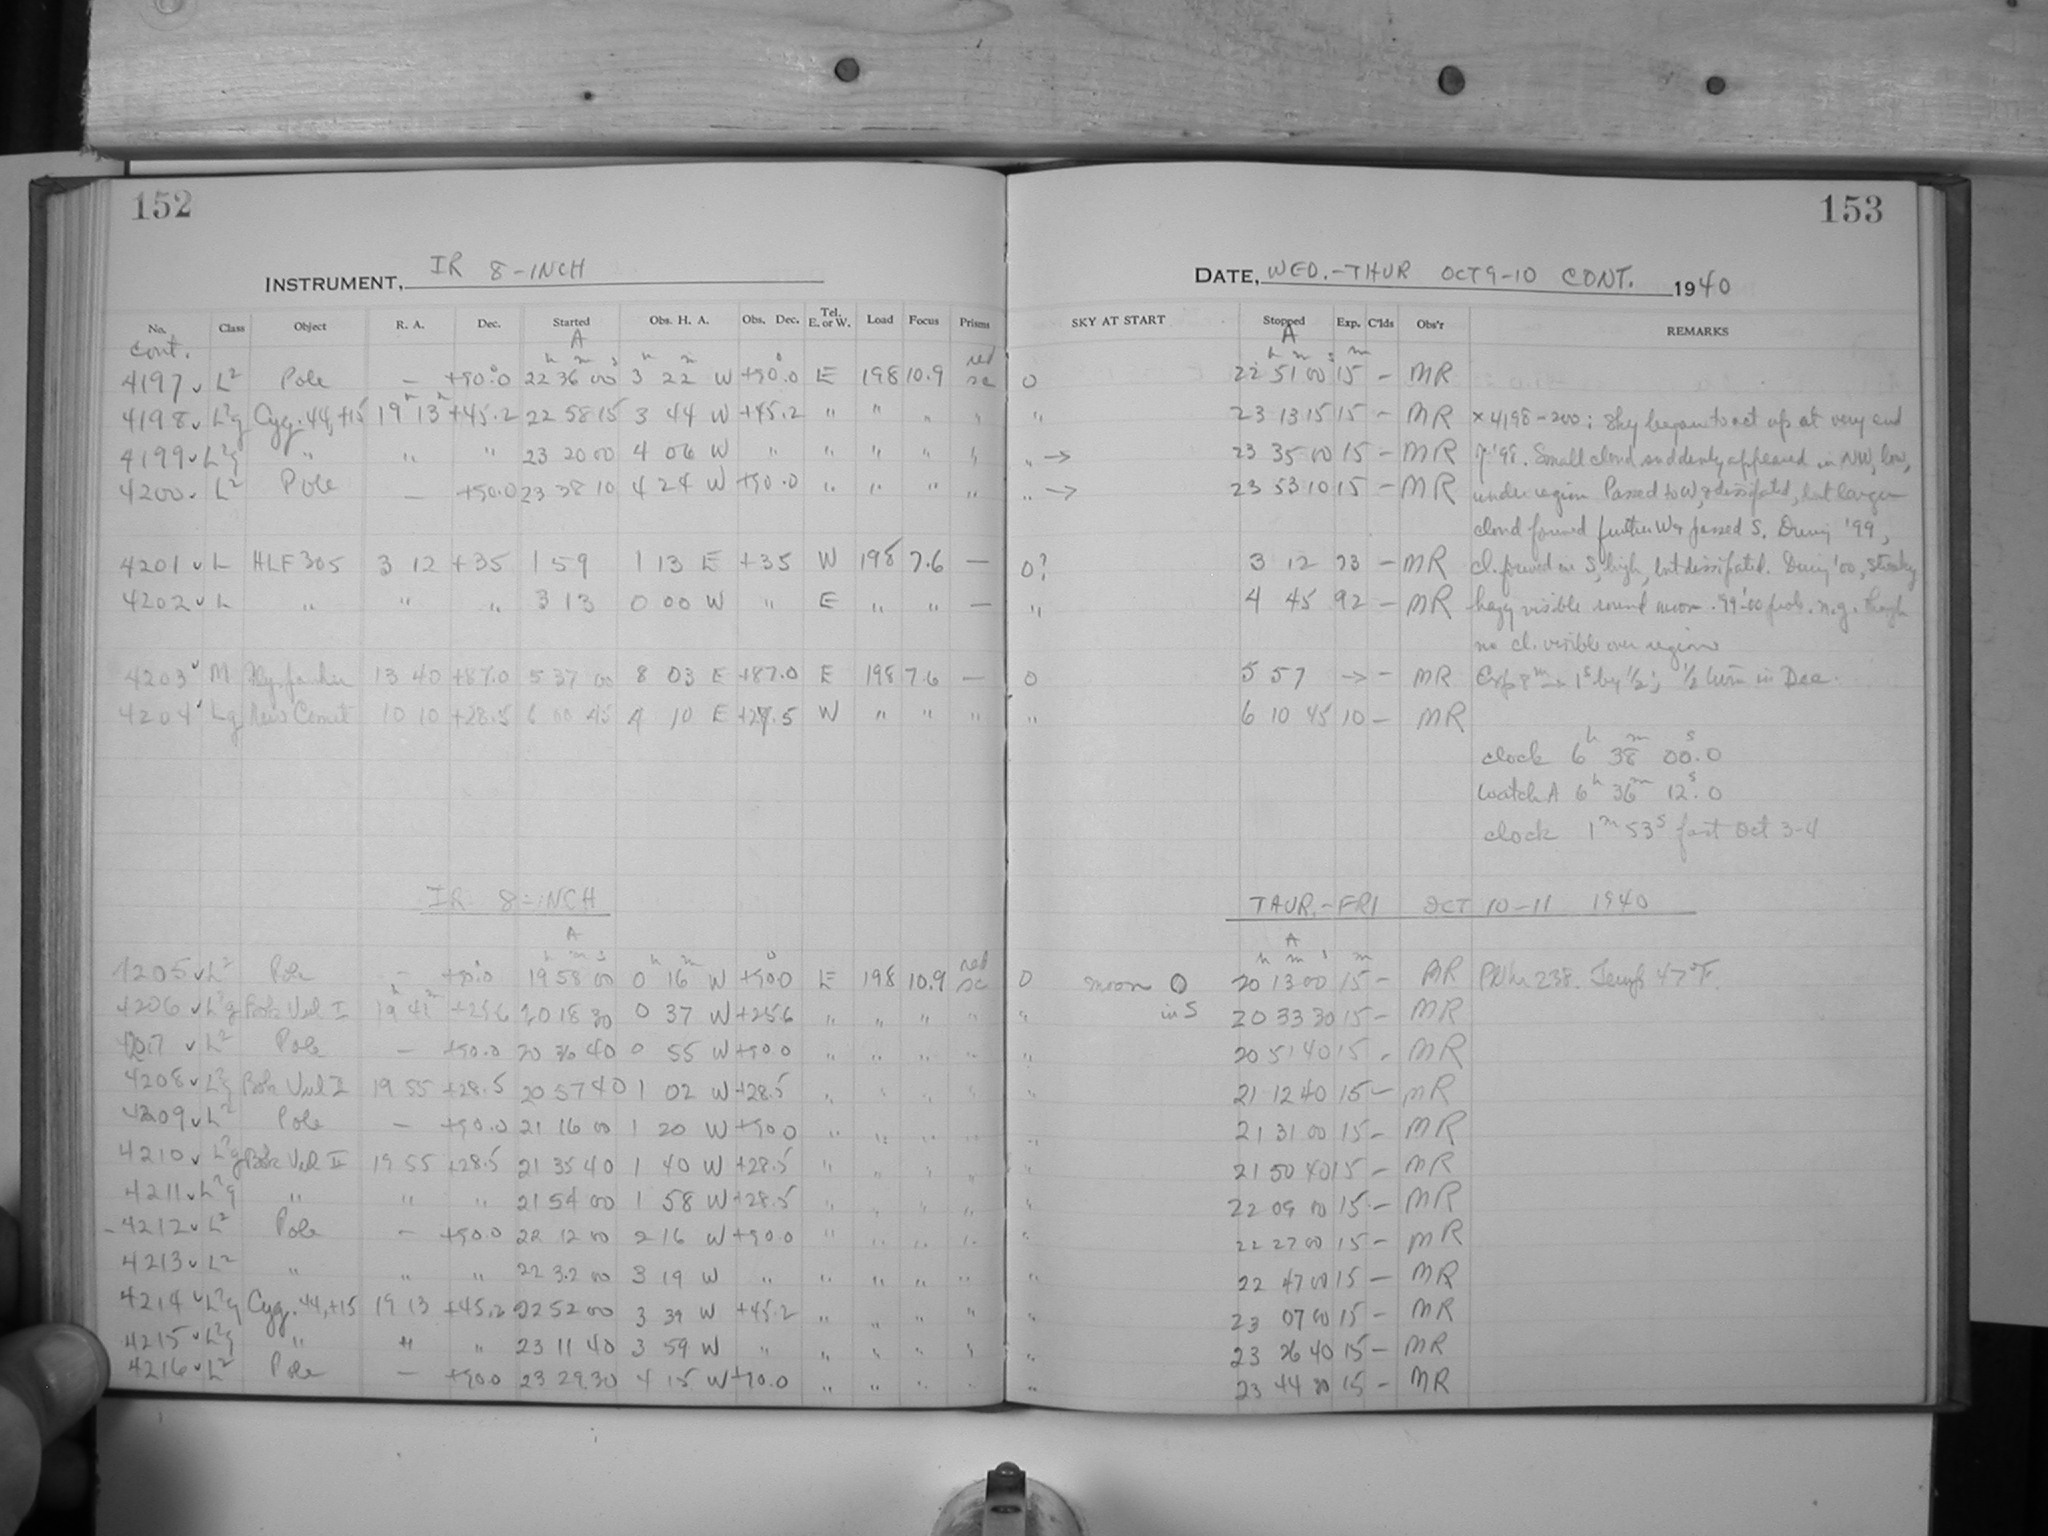 152
INSTRUMENT, IR 8-INCH
No. Class Object R. A. Dec. Started Obs. H. A. Obs. Dec. Tel. E. or W. Load Focus Prisms
cont. A
h m s h m ° red
4197 v L² Pole — +90.0 22 36 00 3 22 W +90.0 E 198 10.9 sc
4198 v L²g Cyg. 44,+15 19h 13m +45.2 22 58 15 3 44 W +45.2 " " " "
4199 v L²g " " " 23 20 00 4 06 W " " " " "
4200 v L² Pole — +90.0 23 38 10 4 24 W +90.0 " " " "
4201 v L HLF 305 3 12 +35 1 59 1 13 E +35 W 198 7.6 —
4202 v L " " " 3 13 0 00 W " E " " —
4203 v M 13 40 +87.0 5 37 00 8 03 E +87.0 E 198 7.6 —
4204 v Lg New Comet 10 10 +28.5 6 00 45 4 10 E W " " "
IR 8-INCH
A
h m s h m ° red
4205 v L² Pole — +90.0 19 58 00 0 16 W +90.0 E 198 10.9 sc
4206 v L²g Bok Vul I 19h 41m +25.6 20 18 30 0 37 W +25.6 " " " "
4207 v L² Pole — +90.0 20 36 40 0 55 W +90.0 " " " "
4208 v L²g Bok Vul II 19 55 +28.5 20 57 40 1 02 W +28.5 " " " "
4209 v L² Pole — +90.0 21 16 00 1 20 W +90.0 " " " "
4210 v L²g Bok Vul II 19 55 +28.5 21 35 40 1 40 W +28.5 " " " "
4211 v L²g " " " 21 54 00 1 58 W +28.5 " " " "
4212 v L² Pole — +90.0 22 12 00 2 16 W +90.0 " " " "
4213 v L² " " " 22 32 00 3 19 W " " " " "
4214 v L²g Cyg. 44,+15 19 13 +45.2 22 52 00 3 39 W +45.2 " " " "
4215 v L²g " " " 23 11 40 3 59 W " " " " "
4216 v L² Pole — +90.0 23 29 30 4 15 W +90.0 " " " "
153
DATE, WED.-THUR OCT 9-10 CONT. 1940
SKY AT START Stopped Exp. C'lds Obs'r REMARKS
A
h m s m
0 22 51 00 15 — MR
" 23 13 15 15 — MR × 4198-200: Sky began to act up at very end
" → 23 35 00 15 — MR of '98. Small cloud suddenly appeared in NW, low,
" → 23 53 10 15 — MR under region. Passed to W, & dissipated, but larger
cloud formed further W & passed S. During '99,
0? 3 12 73 — MR cl. formed in S, high, but dissipated. During '00, streaky
" 4 45 92 — MR hazy visible round moon. '99-'00 prob. n.g. though
no cl. visible over region
0 5 57 → — MR Exp 8m → 1s by ½; ½ turn in Dec.
" 6 10 45 10 — MR
clock 6h 38m 00s.0
watch A 6h 36m 12s.0
clock 1m 53s fast Oct 3-4
THUR.-FRI OCT 10-11 1940
A
h m s m
0 moon O 20 13 00 15 — MR 238. Temp 47°F.
" in S 20 33 30 15 — MR
" 20 51 40 15 — MR
" 21 12 40 15 — MR
" 21 31 00 15 — MR
" 21 50 40 15 — MR
" 22 09 00 15 — MR
" 22 27 00 15 — MR
" 22 47 00 15 — MR
" 23 07 00 15 — MR
" 23 26 40 15 — MR
" 23 44 30 15 — MR